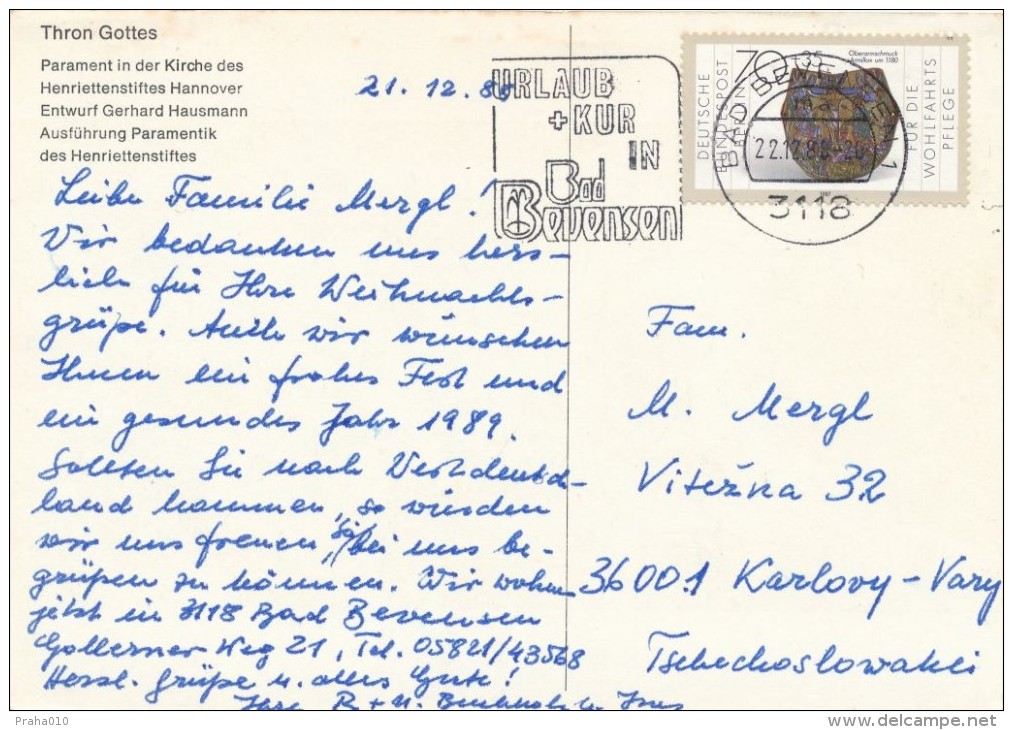 Thron Gottes
Parament in der Kirche des
Henriettenstiftes Hannover
Entwurf Gerhard Hausmann
Ausführung Paramentik
des Henriettenstiftes
21.12.88
URLAUB
+ KUR
IN
Bad
Bevensen
DEUTSCHE
BUNDESPOST
BERLIN
70+35
Oberarmschmuck
Armillas um 1180
FÜR DIE
WOHLFAHRTS
PFLEGE
1987
BAD BEVENSEN 1
22.12.88-20
3118
Liebe Familie Mergl!
Wir bedanken uns herz-
lich für Ihre Weihnachts-
grüße. Auch wir wünschen
Ihnen ein frohes Fest und
ein gesundes Jahr 1989.
Sollten Sie nach Westdeutsch-
land kommen, so würden
wir uns freuen, Sie bei uns be-
grüßen zu können. Wir wohnen
jetzt in 3118 Bad Bevensen
Gollerner Weg 21, Tel. 05821/43568
Herzl. Grüße u. alles Gute!
Ihre R. + U.
Fam.
M. Mergl
Vitežna 32
36001 Karlovy-Vary
Tschechoslowakei
Praha010
delcampe.net